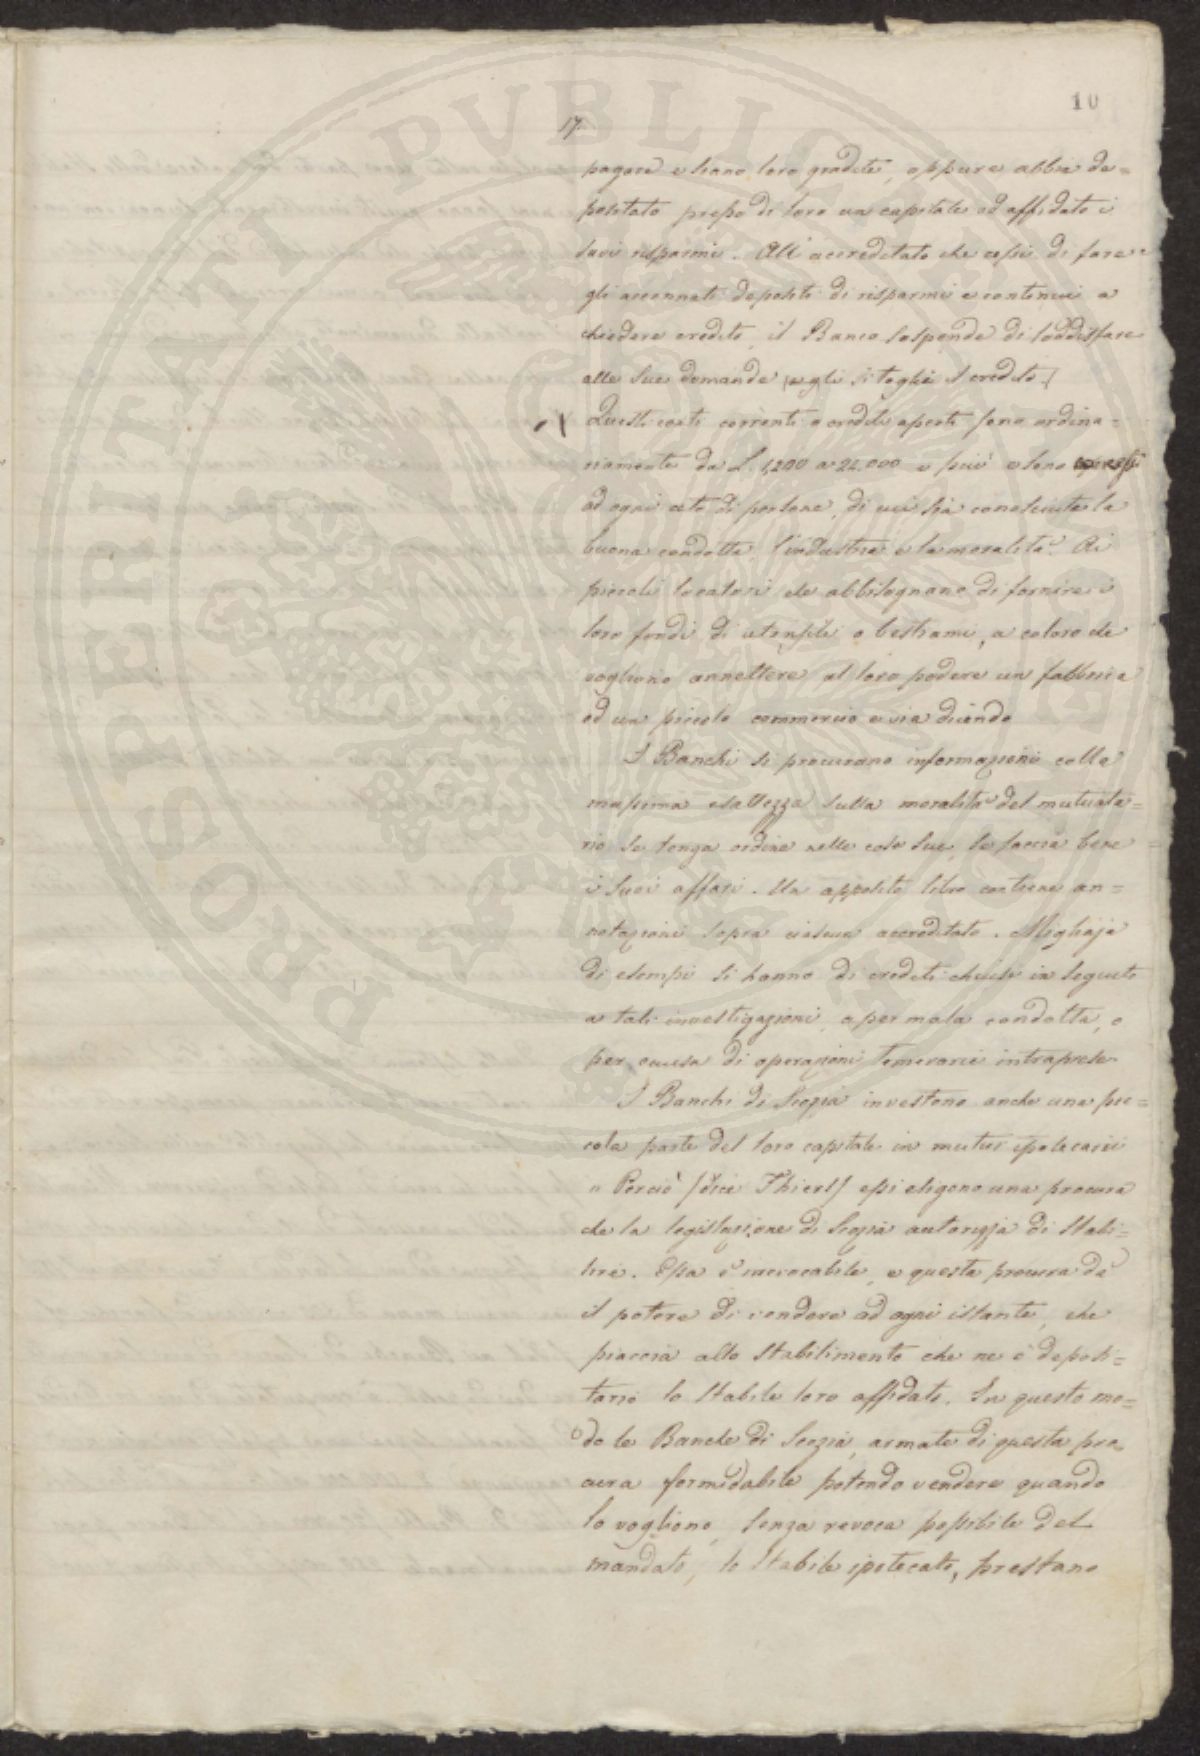 10
17
pagare e siano loro gradite, oppure abbia de=
positato presso di loro un capitale od affidato i
suoi risparmi. All'accreditato che cessi di fare
gli accennati depositi di risparmi e continui a
chiedere credito, il Banco sospende di soddisfare
alle sue domande, e gli si toglie il credito.
Questi conti correnti o crediti aperti sono ordina=
riamente da L. 1,200 a 22.000 e più e sono
ad ogni ceto di persone, di cui sia conosciuta la
buona condotta, l'industria e la moralità. Ai
piccoli locatori che abbisognano di fornire i
loro fondi di utensili o bestiami, a coloro che
vogliono annettere al loro podere un fabbrica
od un piccolo commercio e via dicendo
I Banchi si procurano informazioni colla
massima esattezza sulla moralità del mutuata=
rio se tenga ordine nelle cose sue, se faccia bene
i suoi affari. Un apposito libro contiene an=
notazioni sopra ciascun accreditato. Migliaja
di esempi si hanno di crediti chiusi in seguito
a tali investigazioni, o per mala condotta, o
per causa di operazioni temerarie intraprese
I Banchi di Scozia investono anche una pic=
cola parte del loro capitale in mutui ipotecarii
" Perciò (dice Thiers) essi esigono una procura
che la legislazione di Scozia autorizza di stabi=
lire. Essa è irrevocabile, e questa procura dà
il potere di vendere ad ogni istante, che
piaccia allo stabilimento che ne è deposi=
tario lo stabile loro affidato. In questo mo=
do le Banche di Scozia, armate di questa pro=
cura formidabile potendo vendere quando
lo vogliono, senza revoca possibile del
mandato, lo stabile ipotecato, prestano
PROSPERITATI PUBLICAE